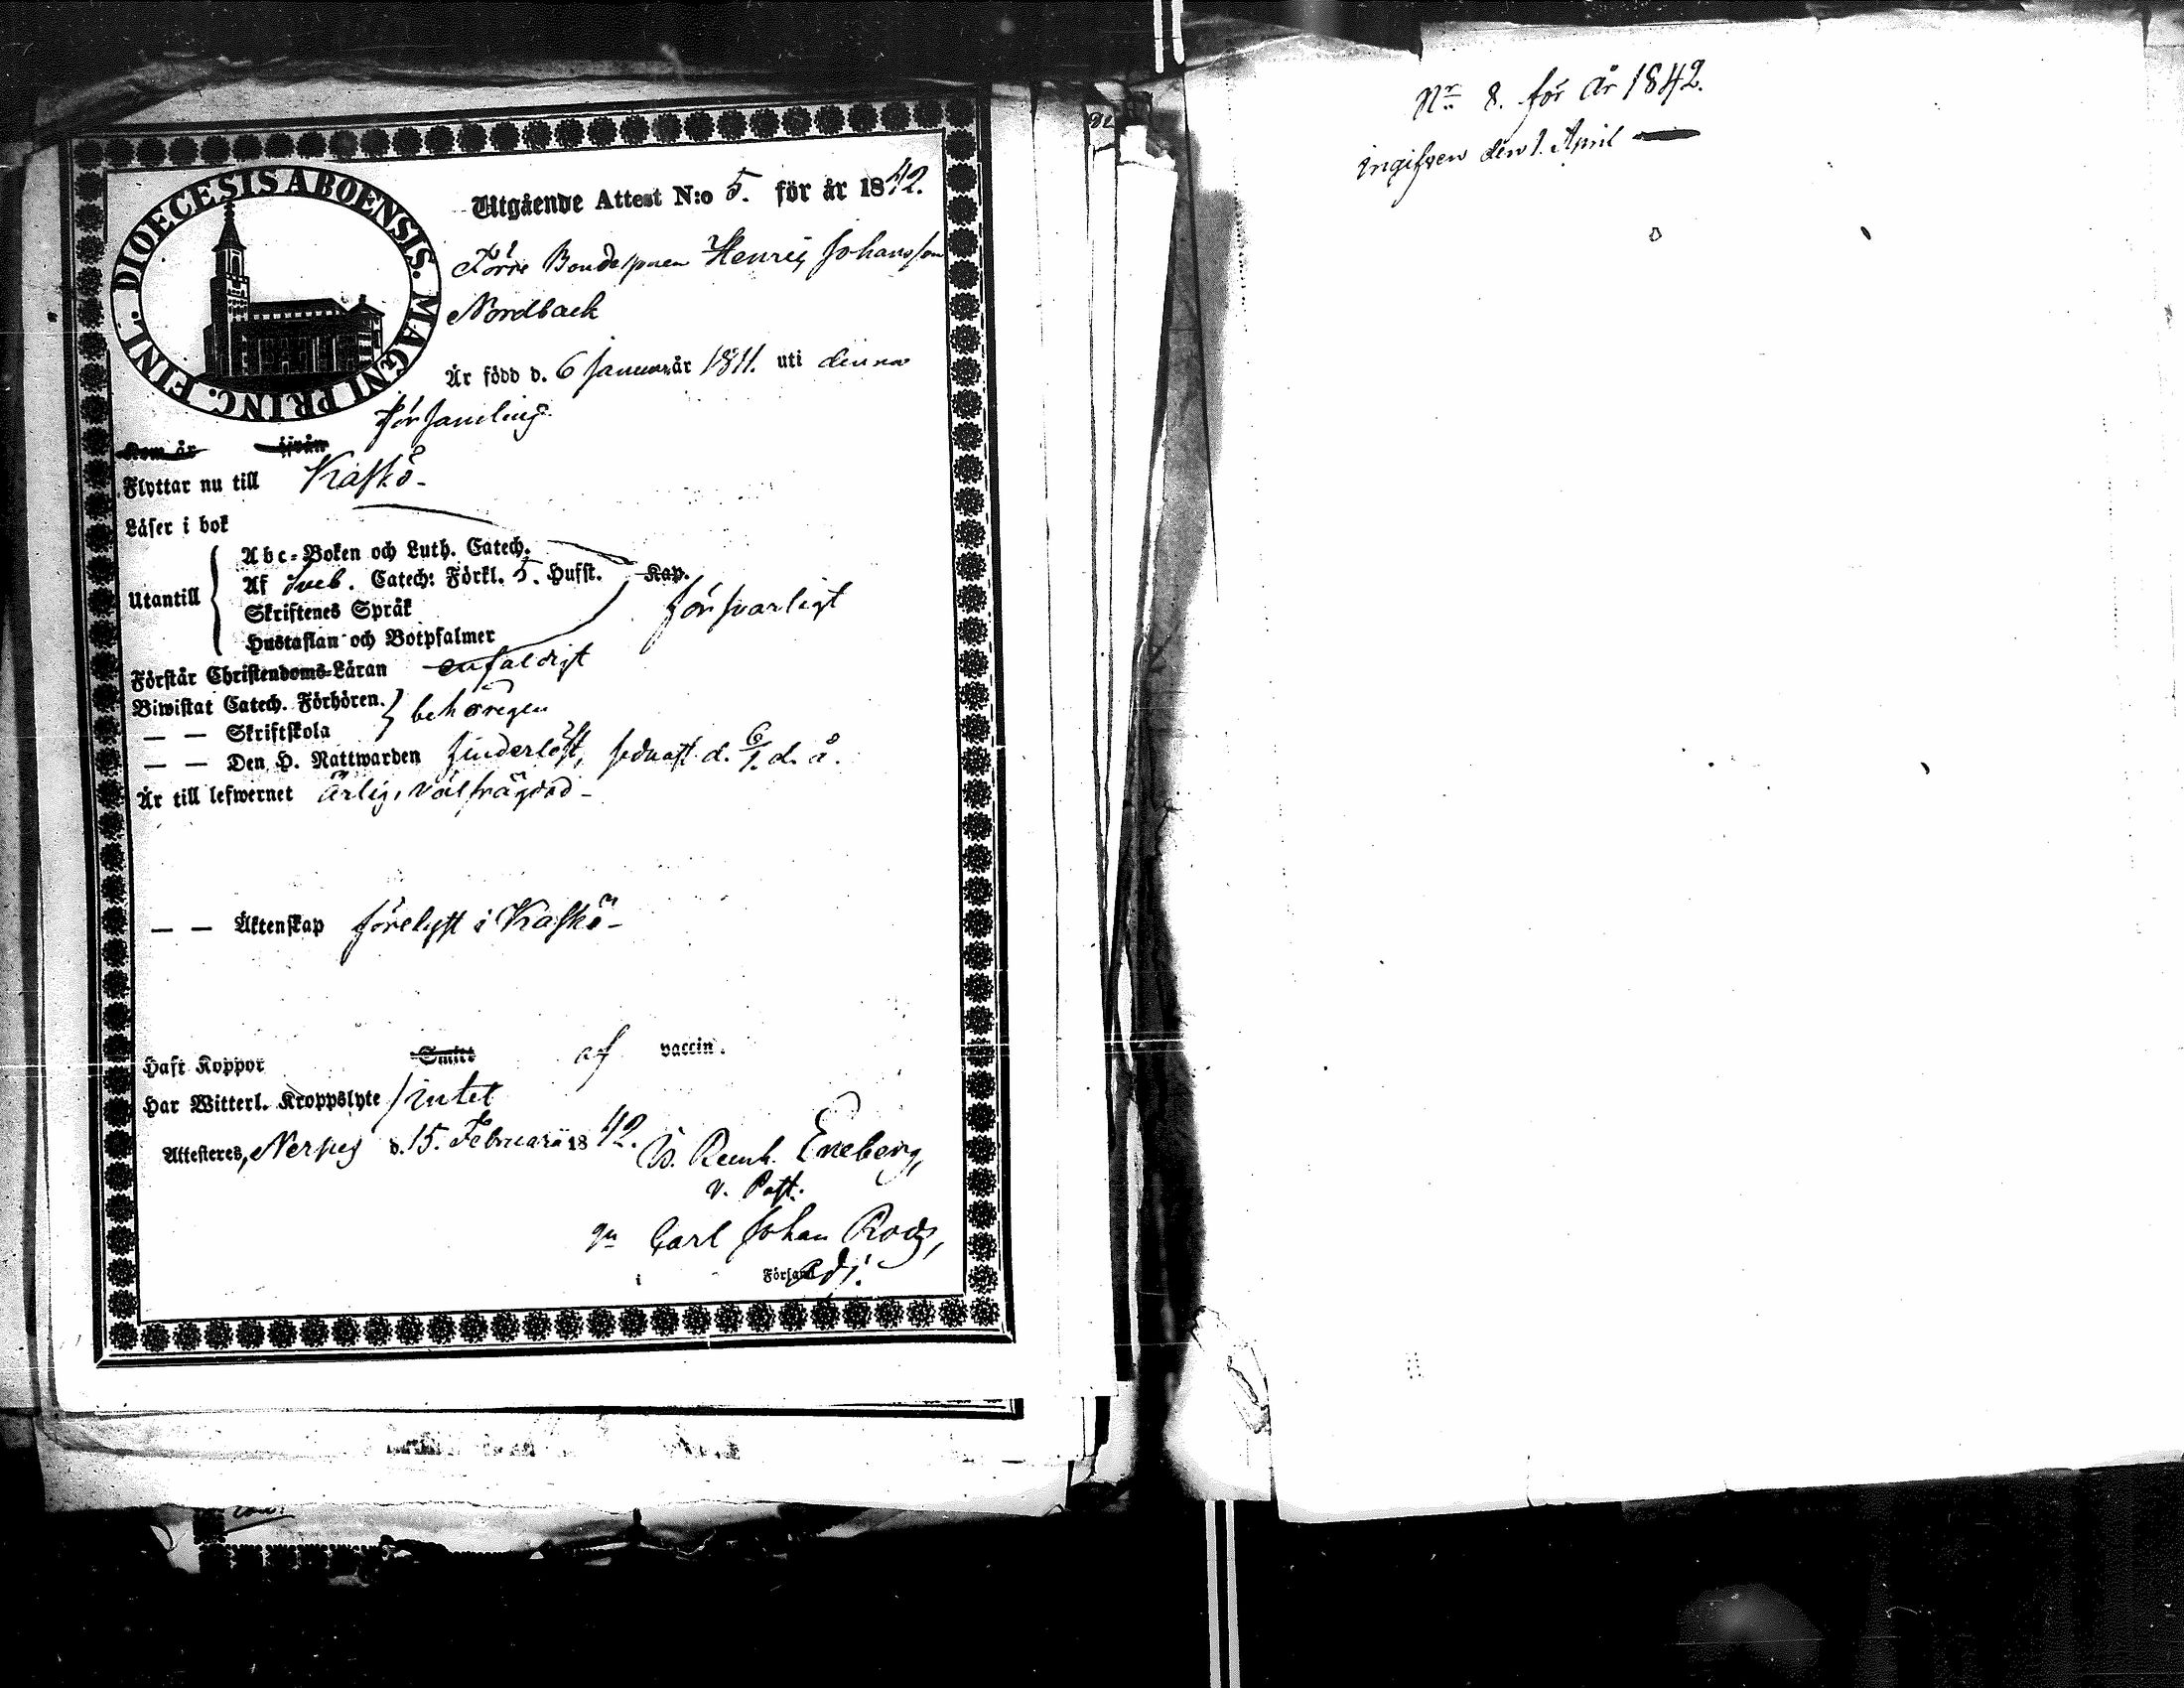 DIOECESIS ABOENSIS. MAGNI PRINC. FINL.
Utgående Attest N:o 5. för år 1842.
Förre Bondesonen Henric Johansson
Nordback
Är född d. 6 Januar år 1811. uti denna
församling
Kom år ifrån
Flyttar nu till Kaskö-
Läser i bok
Utantill
Abc-Boken och Luth. Catech.
Af Sveb. Catech: Förkl. 5. Hufst. Kap.
Skriftenes Språk
Hustaflan och Botpsalmer
försvarligt
Förstår Christendoms-Läran enfaldigt
Biwistat Catech. Förhören.
— — Skriftskola
behörigen
— — Den H. Nattwarden sednast d. 6/1. d. å.
Är till lefwernet Ärlig, välfrägdad -
— — Äktenskap förelyst i Kaskö -
Haft Koppor Smitt af vaccin.
Har Witterl. Kroppslyte intet
Attesteres, Nerpes d. 15. Februarii 1842.
Eneberg,
v. Past.
gm Carl Johan
i Församl. Adj.
Nr 8. för år 1842.
ingifven den 1. April